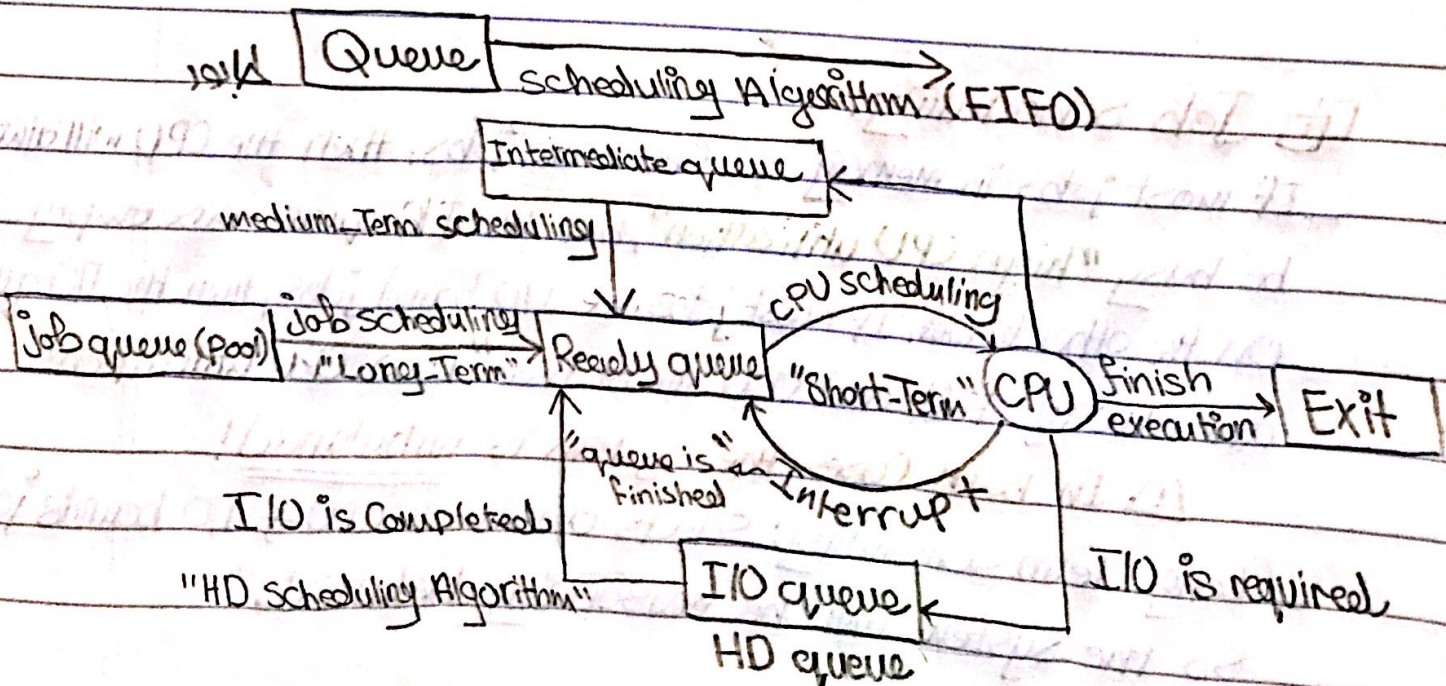 طابور Queue scheduling Algorithm (FIFO)
Intermediate queue
medium-Term scheduling
CPU scheduling
job queue (Pool) job scheduling "Long-Term" Ready queue "Short-Term" CPU finish execution Exit
"queue is finished" Interrupt
I/O is Completed
"HD scheduling Algorithm" I/O queue I/O is required
HD queue